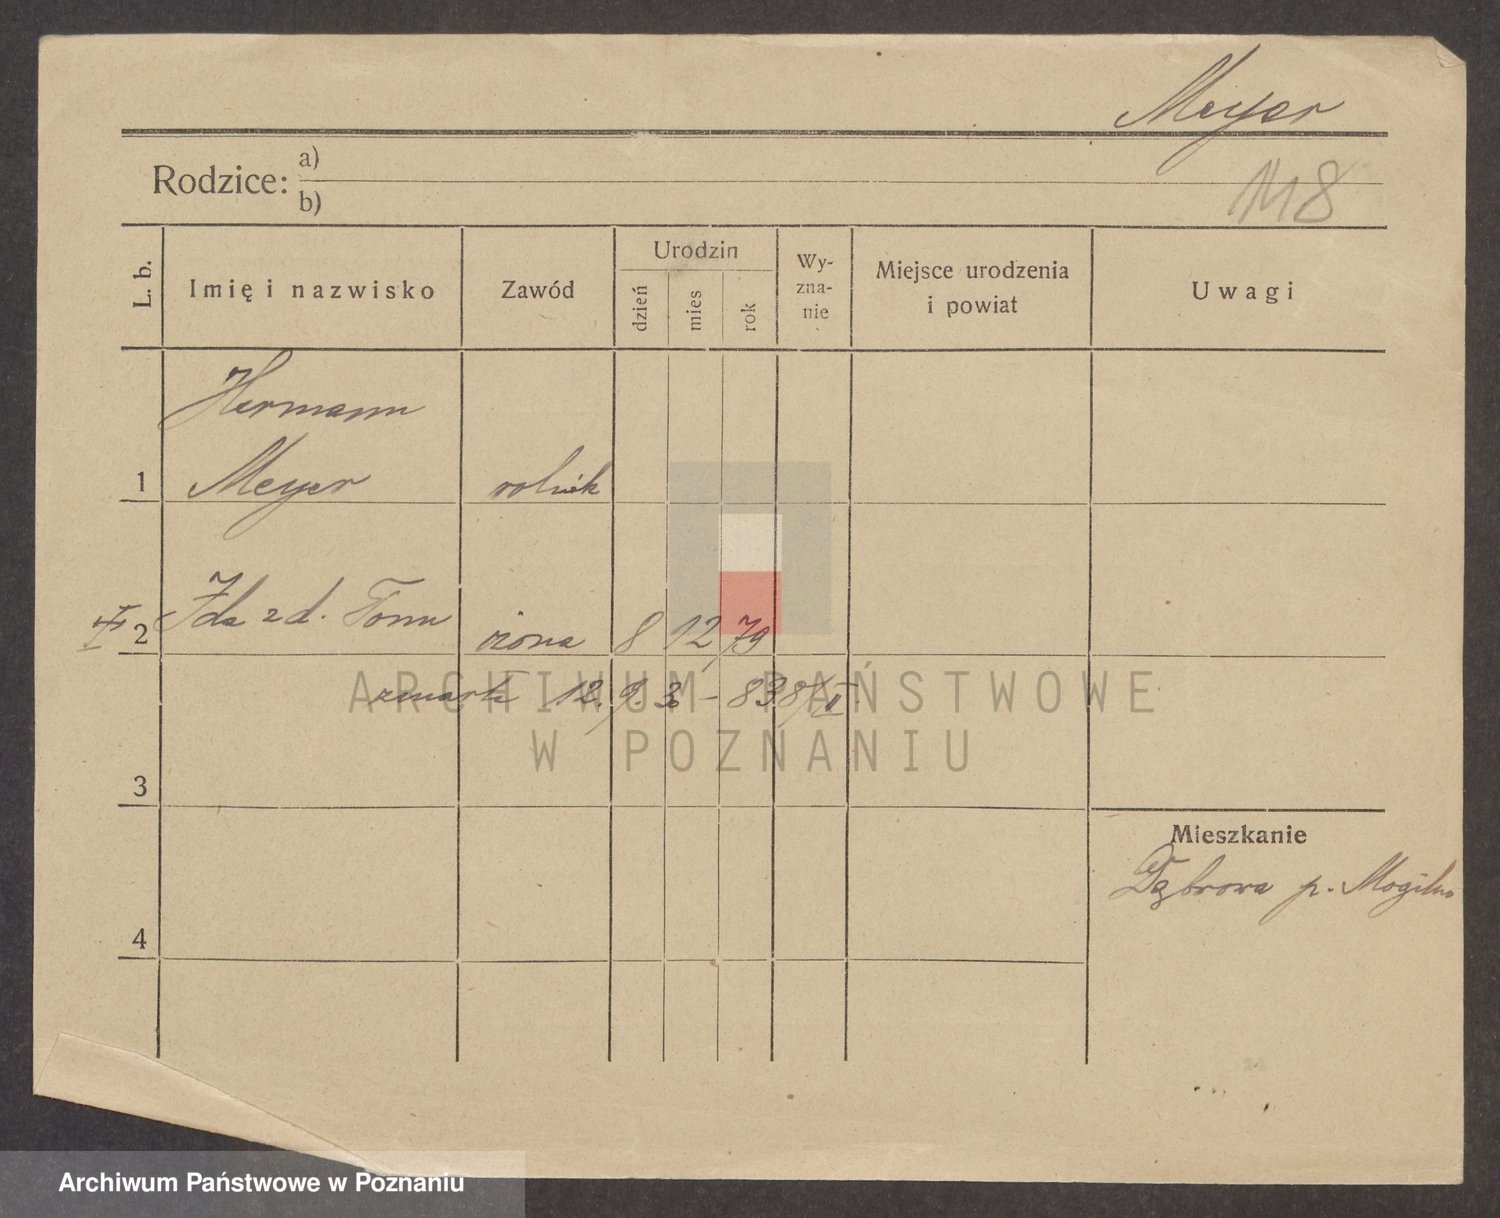 Meyer
Rodzice: a)
b)
118
L. b. Imię i nazwisko Zawód Urodzin dzień mies rok Wy-zna-nie Miejsce urodzenia i powiat Uwagi
Hermann
1 Meyer rolnik
2 Ida zd. Tonn żona 8 12 79
zmarła 12. 9. 3 - 838/II
ARCHIWUM PAŃSTWOWE
W POZNANIU
3
Mieszkanie
Dąbrowa p. Mogilno
4
Archiwum Państwowe w Poznaniu